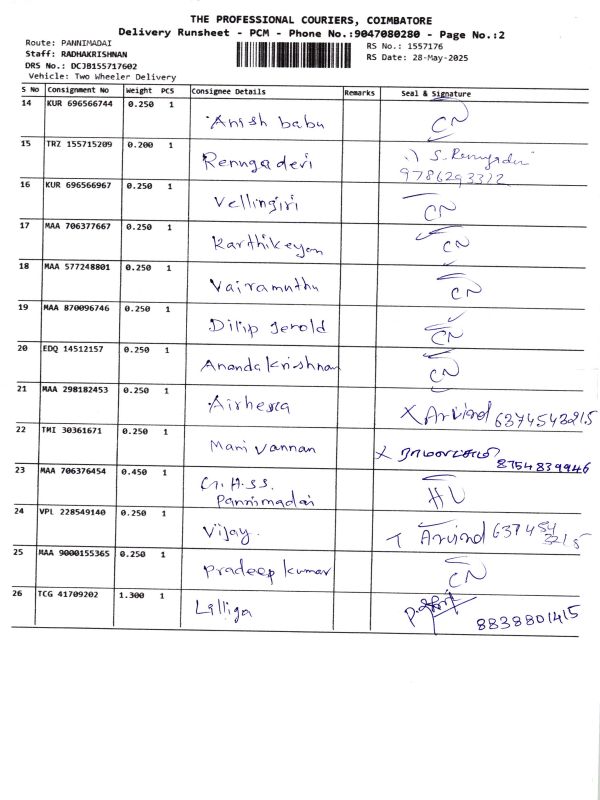 THE PROFESSIONAL COURIERS, COIMBATORE
Delivery Runsheet - PCM - Phone No.:9047080280 - Page No.:2
Route: PANNIMADAI
RS No.: 1557176
Staff: RADHAKRISHNAN
RS Date: 28-May-2025
DRS No.: DCJB155717602
Vehicle: Two Wheeler Delivery
S No Consignment No Weight PCS Consignee Details Remarks Seal & Signature
14 KUR 696566744 0.250 1 Anish babu CN
15 TRZ 155715209 0.200 1 Renugadevi S. Renugadevi
9786293322
16 KUR 696566967 0.250 1 Vellingiri CN
17 MAA 706377667 0.250 1 Karthikeyan CN
18 MAA 577248801 0.250 1 Vairamuthu CN
19 MAA 870096746 0.250 1 Dilip Jerold CN
20 EDQ 14512157 0.250 1 Anandakrishnan CN
21 MAA 298182453 0.250 1 X Arvind 6374543215
22 TMI 30361671 0.250 1 Mani Vannan X
8754839946
23 MAA 706376454 0.450 1 G.H.SS.
Pannimadai
24 VPL 228549140 0.250 1 Vijay. Arvind 637454
3215
25 MAA 9000155365 0.250 1 Pradeep kumar CN
26 TCG 41709202 1.300 1 Lilliga
8838801415